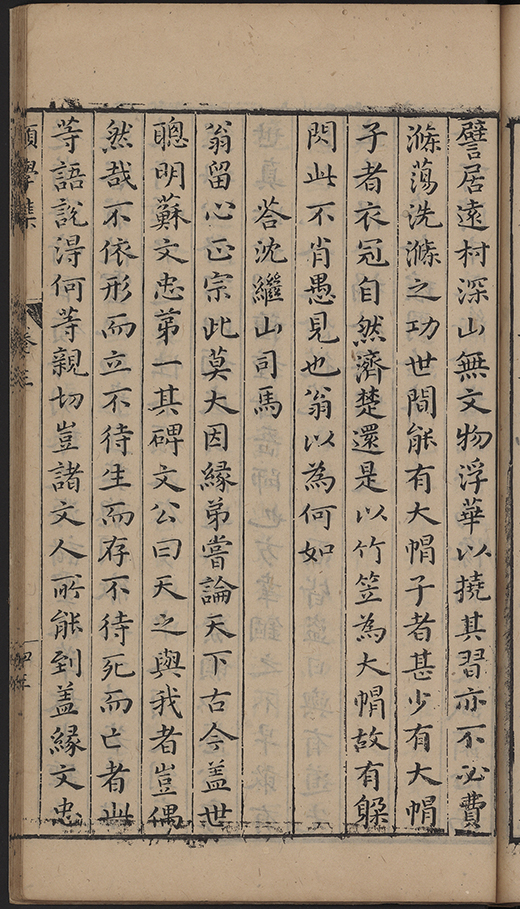 譬居遠村深山無文物浮華以撓其習亦不必費
滌蕩洗滌之功世間能有大帽子者甚少有大帽
子者衣冠自然濟楚還是以竹笠為大帽故有躱
閃此不肖愚見也翁以為何如
荅沈繼山司馬
翁留心正宗此莫大因緣弟嘗論天下古今盖世
聰明蘇文忠第一其碑文公曰天之與我者豈偶
然哉不依形而立不待生而存不待死而亡者此
等語說淂何等親切豈諸文人所能到盖緣文忠
學集